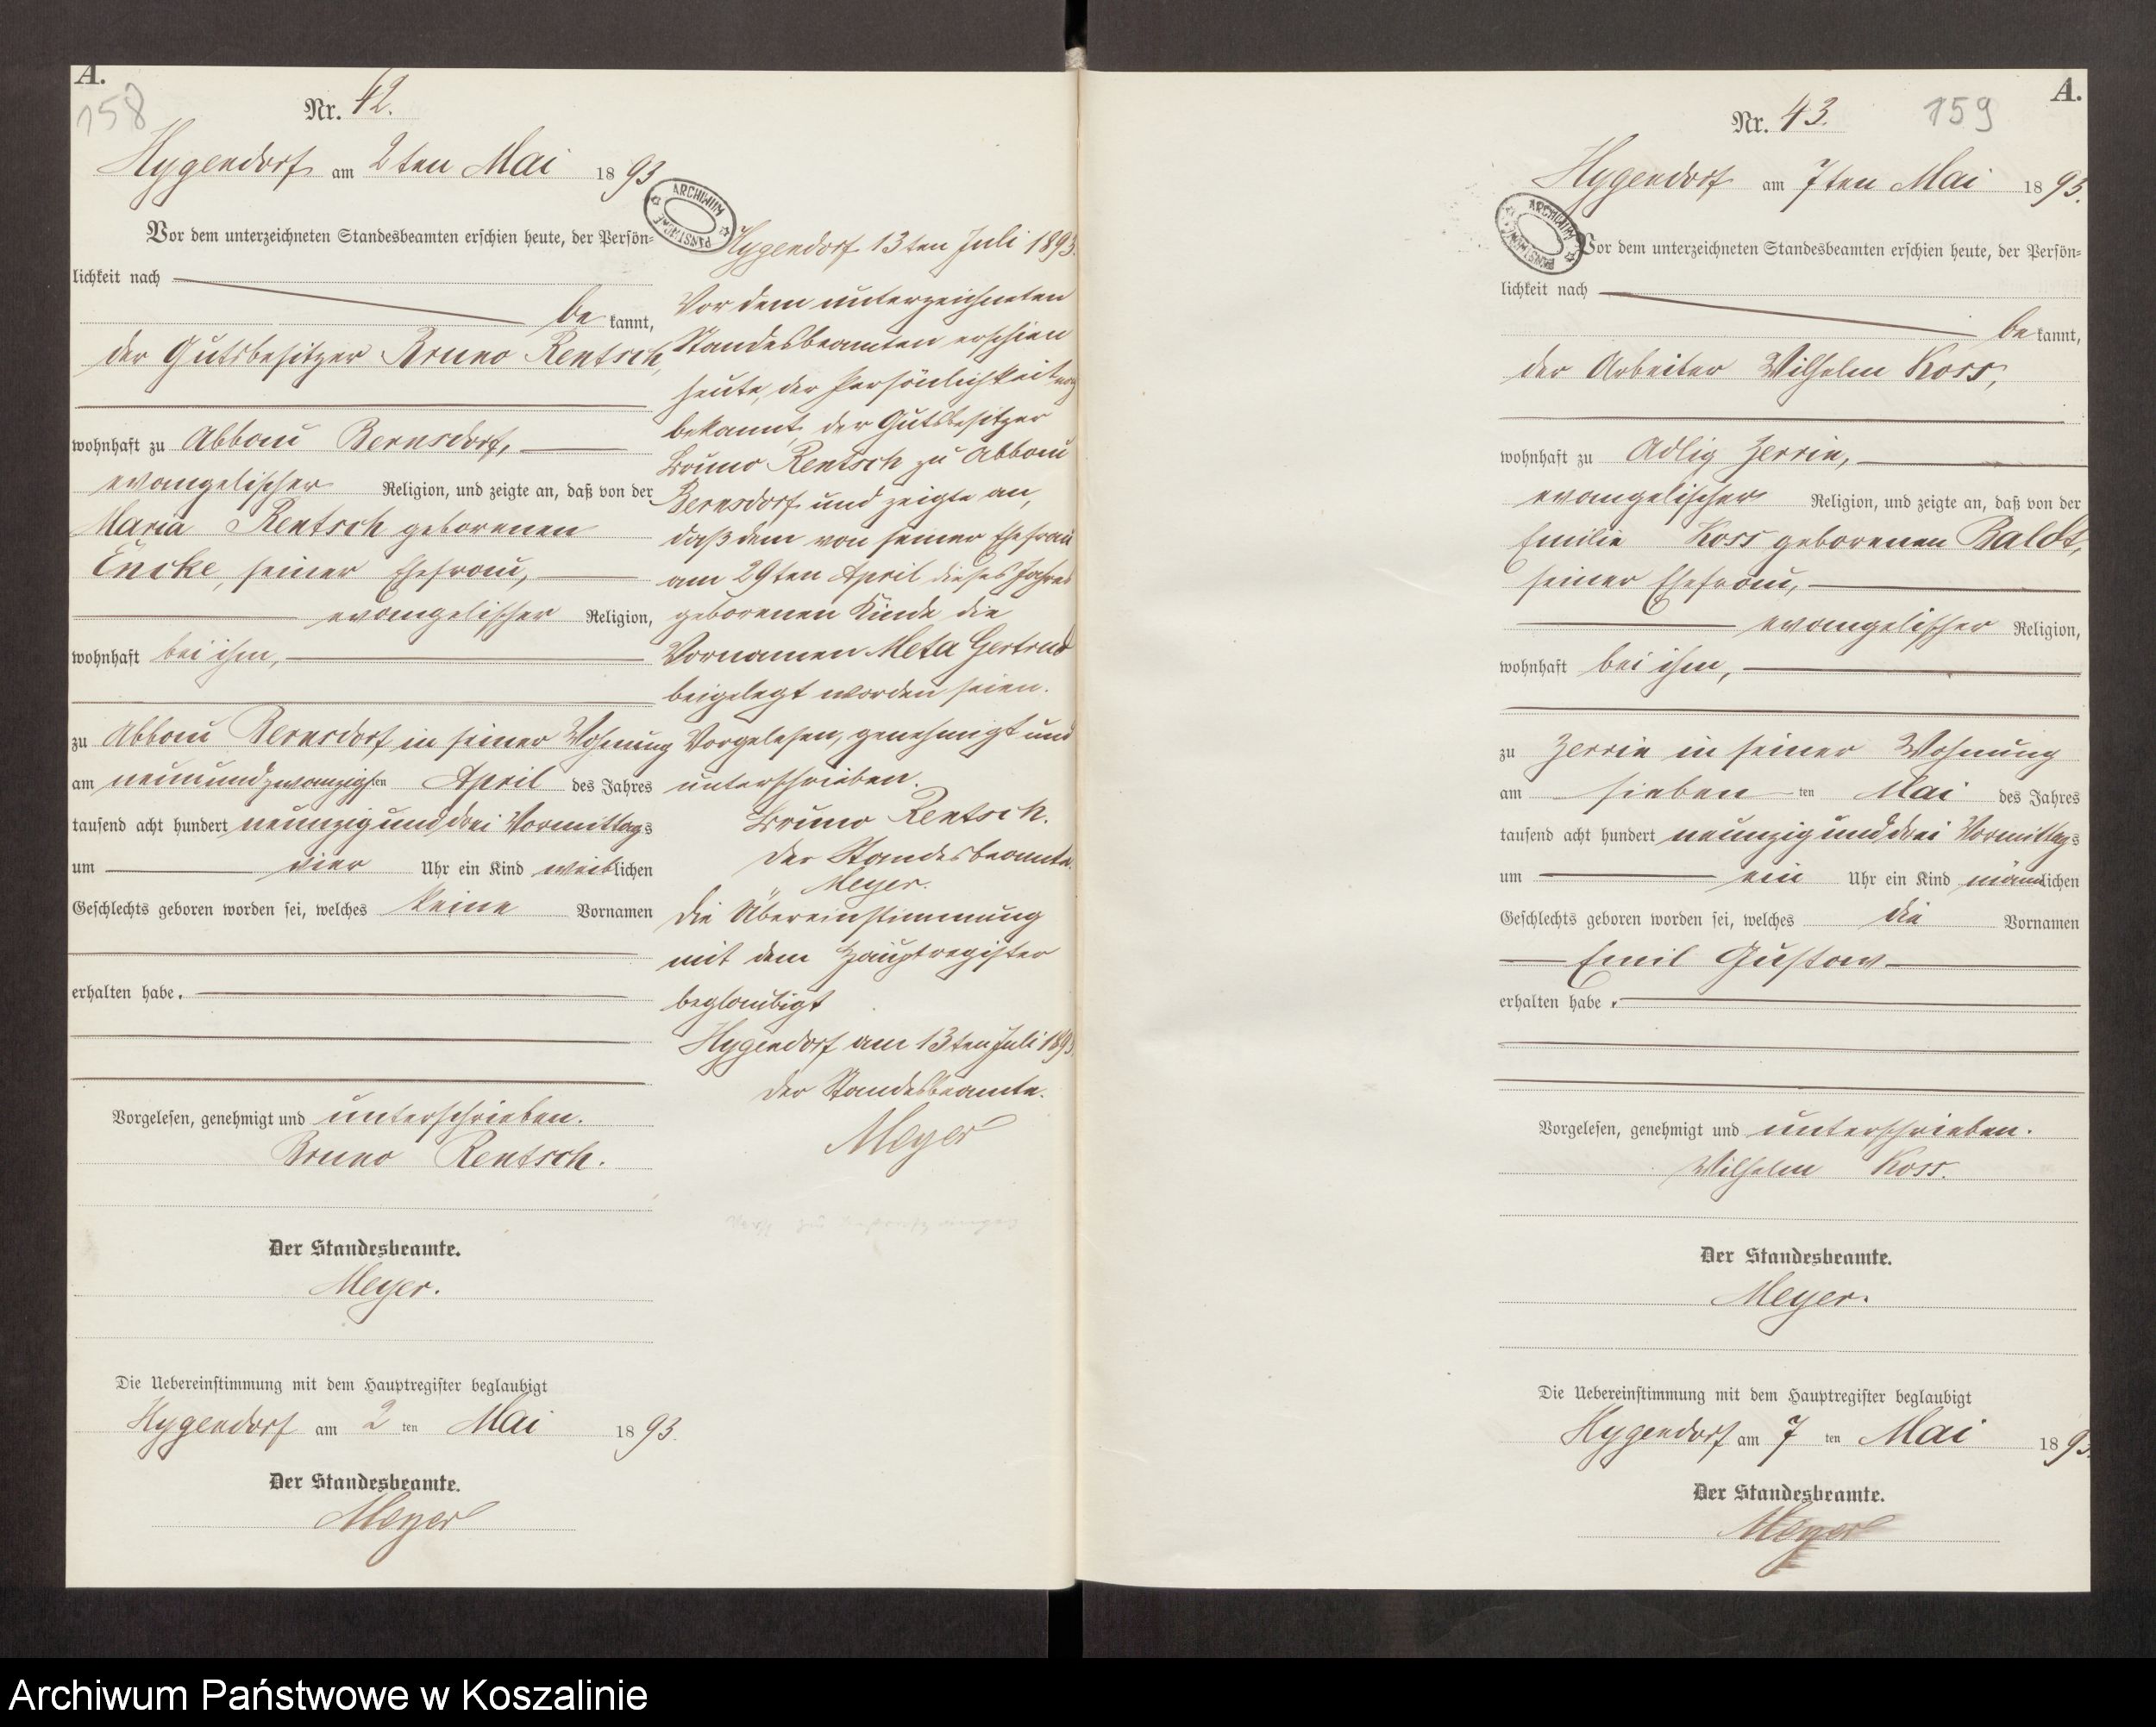 A.
158
Nr. 42.
Hygendorf am 2ten Mai 1893
Vor dem unterzeichneten Standesbeamten erschien heute, der Persön-
lichkeit nach
be kannt,
der Gutsbesitzer Bruno Rentsch,
wohnhaft zu Abbau Bernsdorf,
evangelischer Religion, und zeigte an, daß von der
Maria Rentsch geborenen
Encke, seiner Ehefrau,
evangelischer Religion,
wohnhaft bei ihm,
zu Abbau Bernsdorf in seiner Wohnung
am neunundzwanzigsten April des Jahres
tausend acht hundert neunzig und drei Vormittags
um vier Uhr ein Kind weiblichen
Geschlechts geboren worden sei, welches keine Vornamen
erhalten habe.
Vorgelesen, genehmigt und unterschrieben.
Bruno Rentsch.
Der Standesbeamte.
Meyer.
Die Uebereinstimmung mit dem Hauptregister beglaubigt
Hygendorf am 2 ten Mai 1893.
Der Standesbeamte.
Meyer
ARCHIWUM PAŃSTWOWE
Hygendorf 13ten Juli 1893.
Vor dem unterzeichneten
Standesbeamten erschien
heute, der Persönlichkeit nach
bekannt der Gutsbesitzer
Bruno Rentsch zu Abbau
Bernsdorf und zeigte an,
daß dem von seiner Ehefrau
am 29ten April dieses Jahres
geborenen Kinde die
Vornamen Meta Gertrud
beigelegt worden seien.
Vorgelesen, genehmigt und
unterschrieben.
Bruno Rentsch.
Der Standesbeamte.
Meyer.
Die Übereinstimmung
mit dem Hauptregister
beglaubigt
Hygendorf am 13ten Juli 1893
Der Standesbeamte.
Meyer
A.
159
Nr. 43.
Hygendorf am 7ten Mai 1893.
ARCHIWUM PAŃSTWOWE
Vor dem unterzeichneten Standesbeamten erschien heute, der Persön-
lichkeit nach
be kannt,
der Arbeiter Wilhelm Koss,
wohnhaft zu Adlig Zerrin,
evangelischer Religion, und zeigte an, daß von der
Emilie Koss geborenen Baldt,
seiner Ehefrau,
evangelischer Religion,
wohnhaft bei ihm,
zu Zerrin in seiner Wohnung
am sieben ten Mai des Jahres
tausend acht hundert neunzig und drei Vormittags
um ein Uhr ein Kind männlichen
Geschlechts geboren worden sei, welches die Vornamen
Emil Gustav
erhalten habe.
Vorgelesen, genehmigt und unterschrieben.
Wilhelm Koss.
Der Standesbeamte.
Meyer.
Die Uebereinstimmung mit dem Hauptregister beglaubigt
Hygendorf am 7 ten Mai 1893.
Der Standesbeamte.
Meyer
Archiwum Państwowe w Koszalinie